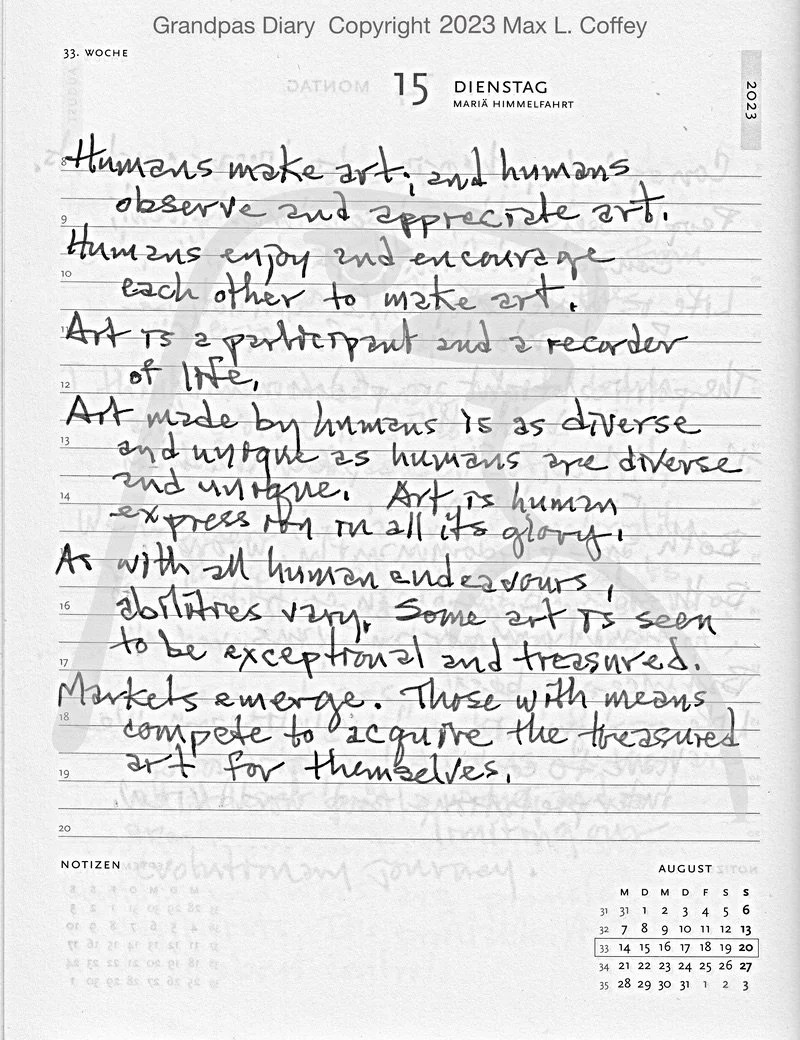 Grandpas Diary Copyright 2023 Max L. Coffey
33. WOCHE
15 DIENSTAG
MARIÄ HIMMELFAHRT
2023
MONTAG
8 Humans make art; and humans
observe and appreciate art.
9
Humans enjoy and encourage
10
each other to make art.
11 Art is a participant and a recorder
of life.
12
Art made by humans is as diverse
13
and unique as humans are diverse
and unique. Art is human
14
expression in all its glory.
As with all human endeavours,
16
abilities vary. Some art is seen
to be exceptional and treasured.
17
Markets emerge. Those with means
18
compete to acquire the treasured
art for themselves.
19
20
NOTIZEN
AUGUST
M D M D F S S
31 31 1 2 3 4 5 6
32 7 8 9 10 11 12 13
33 14 15 16 17 18 19 20
34 21 22 23 24 25 26 27
35 28 29 30 31 1 2 3